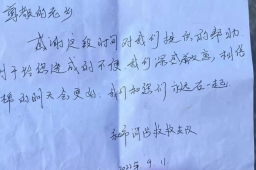 尊敬的
感谢这段时间对我们提供的帮助
对于给您造成的不便我们深感
的明天会更好，我们和您们永远在一起
救援支队
2022年9.11